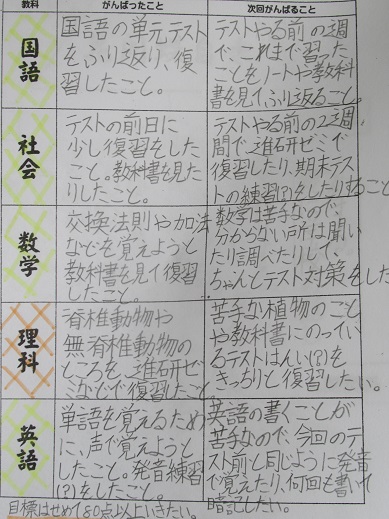 教科
がんばったこと
次回がんばること
国語
国語の単元テスト
をふり返り、復
習したこと。
テストやる前の週
で、これまで習った
ことをノートや教科
書を見て、ふり返ること。
社会
テストの前日に
少し復習をした
こと。教科書を見た
りしたこと。
テストやる前の2週
間で、進研ゼミで
復習したり、期末テス
トの練習(?)をしたりすること
数学
交換法則や加法
などを覚えようと
教科書を見て復習
したこと。
数学は苦手なので、
分からない所は聞い
たり調べたりして、
ちゃんとテスト対策をした
理科
脊椎動物や
無脊椎動物の
ところを、進研ゼ
ミなどで復習したこと
苦手な植物のこと
や教科書にのってい
るテストはんい(?)を
きっちりと復習したい。
英語
単語を覚えるため
に、声で覚えようと
したこと。発音練習
(?)をしたこと。
英語の書くことが
苦手なので、今回のテ
スト前と同じように発音
で覚えたり、何回も書いて
暗記したい。
目標はせめて80点以上いきたい。